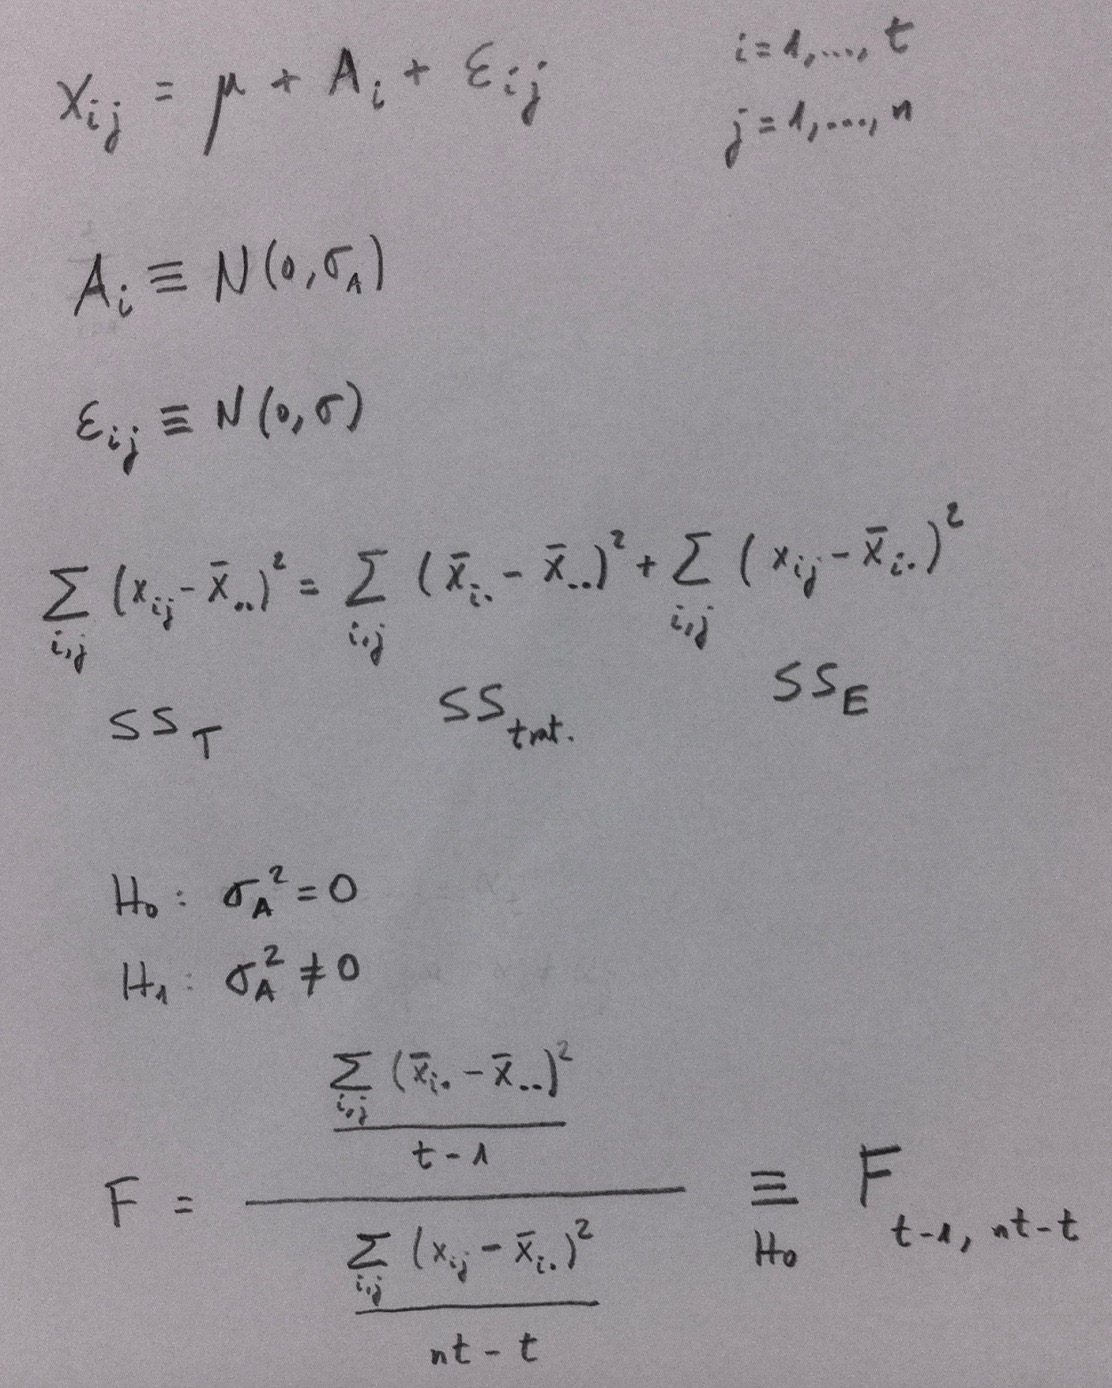 x_{ij} = μ + A_i + ε_{ij}   i = 1, ..., t
j = 1, ..., n
A_i ≡ N(0, σ_A)
ε_{ij} ≡ N(0, σ)
∑_{i,j} (x_{ij} - x̄_{..})² = ∑_{i,j} (x̄_{i.} - x̄_{..})² + ∑_{i,j} (x_{ij} - x̄_{i.})²
SS_T   SS_{tmt.}   SS_E
H_0 : σ_A² = 0
H_1 : σ_A² ≠ 0
F = \frac{\frac{∑_{i,j} (x̄_{i.} - x̄_{..})²}{t - 1}}{\frac{∑_{i,j} (x_{ij} - x̄_{i.})²}{nt - t}} ≡_{H_0} F_{t-1, nt-t}